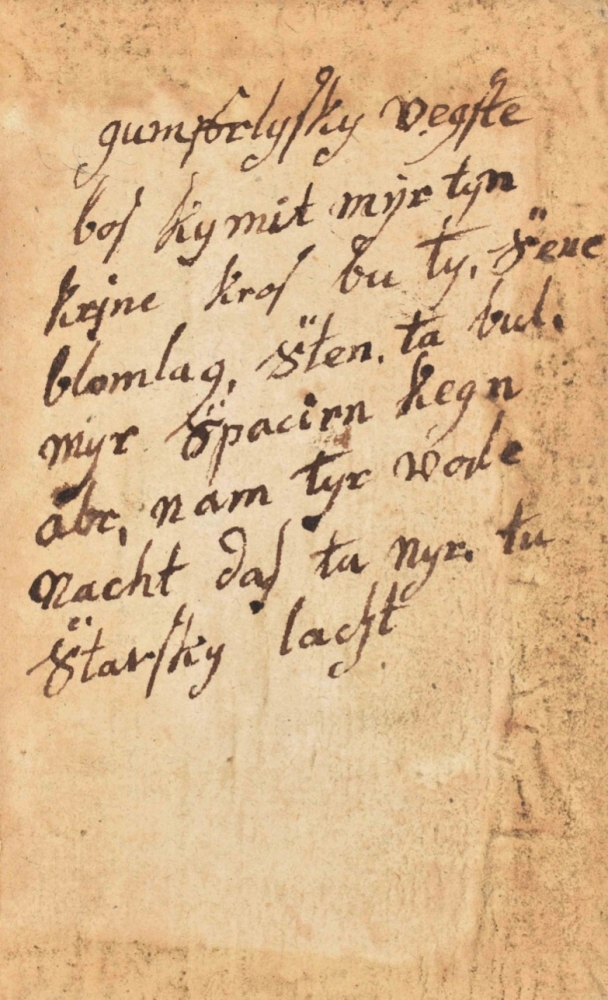 gumpforlyſky vegſte
boſ kymit myr tyn
krÿne kroſ bu ty, s̈ene
blomlag, s̈ten. ta bul.
myr s̈pacirn kegn
abr, nam tyr vode
nacht daſ ta nyr. tu
s̈tarſky lacht